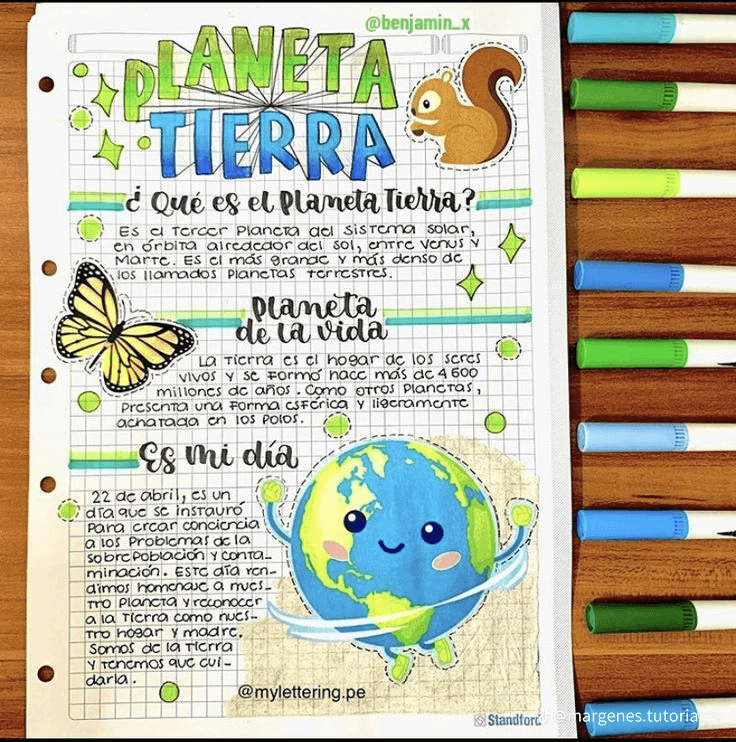 @benjamin_x
PLANETA
TIERRA
¿Qué es el Planeta Tierra?
Es el tercer planeta del sistema solar,
en órbita alrededor del sol, entre Venus y
Marte. Es el más grande y más denso de
los llamados planetas terrestres.
Planeta
de la vida
La Tierra es el hogar de los seres
vivos y se formó hace más de 4 600
millones de años. Como otros planetas,
presenta una forma esférica y ligeramente
achatada en los polos.
Es mi día
22 de abril, es un
día que se instauró
para crear conciencia
a los problemas de la
sobrepoblación y conta-
minación. Este día ren-
dimos homenaje a nues-
tro planeta y reconocer
a la Tierra como nues-
tro hogar y madre.
Somos de la Tierra
y tenemos que cui-
darla.
@mylettering.pe
Standford
@margenes.tutoria